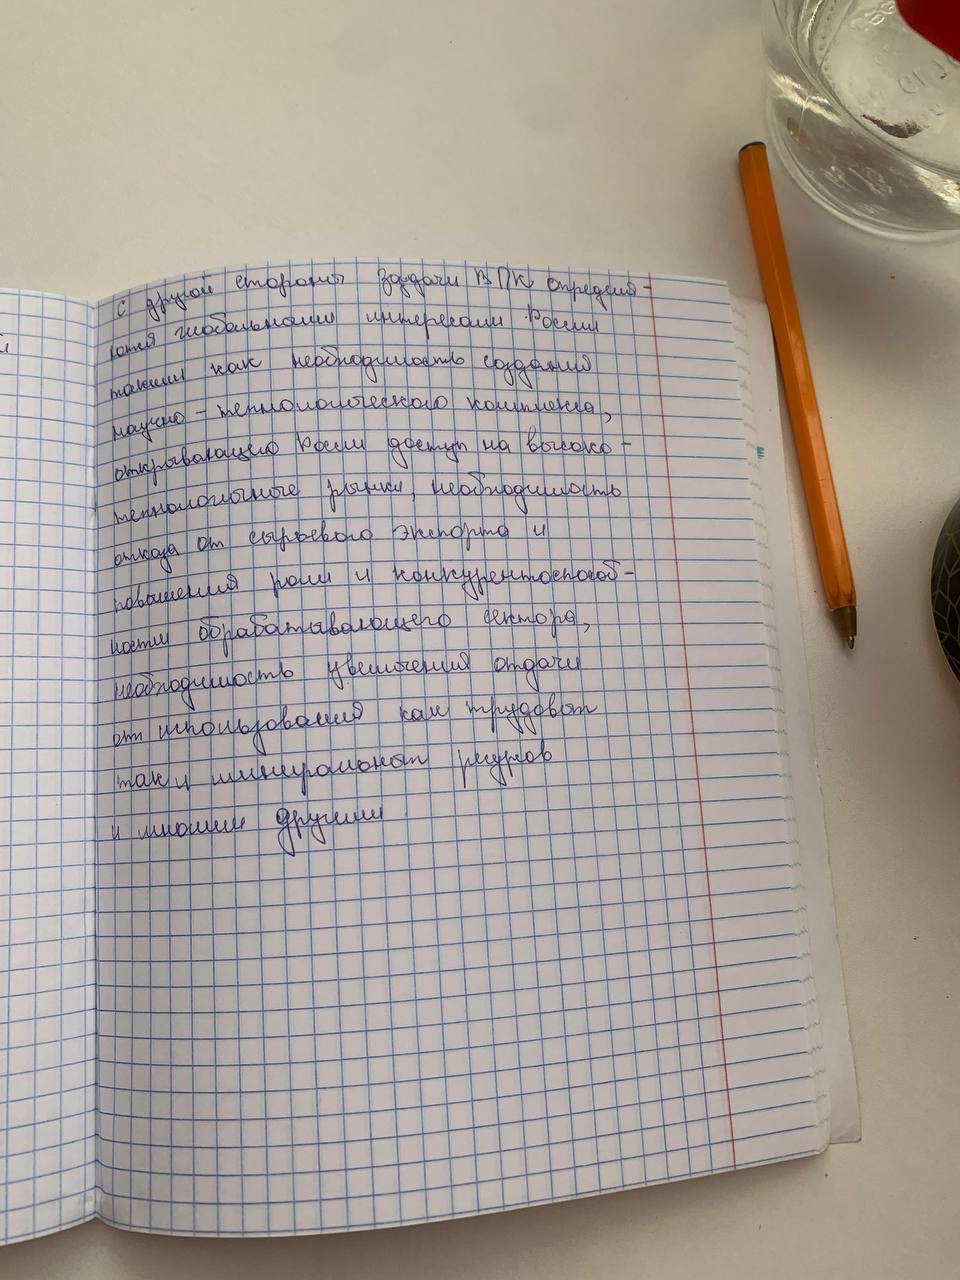 с другой стороны задачи ВПК определя-
ются глобальными интересами России
такими как необходимость создания
научно-технологического комплекса,
открывающего России доступ на высоко-
технологичные рынки, необходимость
отхода от сырьевого экспорта и
повышения роли и конкурентоспособ-
ности обрабатывающего сектора,
необходимость увеличения отдачи
от использования как трудовых
так и минеральных ресурсов
и многими другими